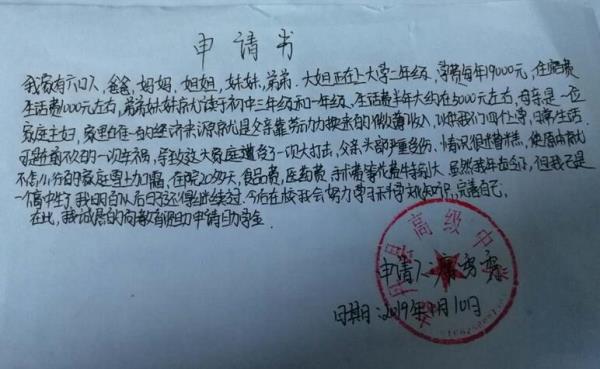 申请书
我家有六口人,爸爸,妈妈,姐姐,妹妹,弟弟.大姐正在上大学二年级,学费每年19000元,住宿费
生活费1000元左右,弟弟妹妹就读于初中三年级和一年级.生活费半年大约在5000元左右,母亲是一位
家庭主妇,家里在唯一的经济来源就是父亲靠劳动力换来的微薄收入,以供我们四个上学,日常生活.
可是就前不久的一次车祸,导致这大家庭遭受了一次大打击,父亲头部严重负伤.情况很糟糕,使原本就
不怎么的家庭雪上加霜,在院20多天,食品费,医药费,手术费等花费特别大.虽然我年龄,但我已是
一个高中生了,我明白以后日子还得继续过.今后在校我会努力学习科学文化知识,完善自己.
在此,我诚恳的向教育助申请助学金.
高级中
申请人:
日期:2019年月10日